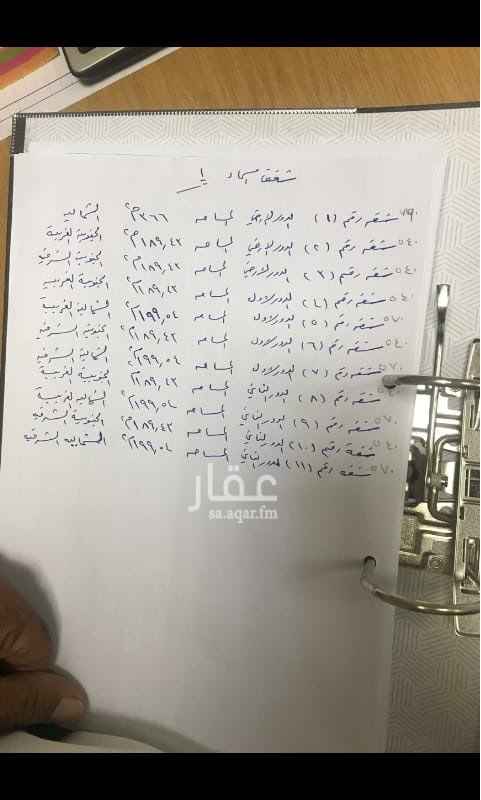 شقق اسماء ١
٧٩٠ شقه رقم (١) الدور الارضي المساحه ٣٦٦م٢ الشماليه
٥٤٠ شقه رقم (٢) الدور الارضي المساحه ١٨٩,٤٣م٢ الجنوبية الغربية
٥٤٠ شقه رقم (٣) الدور الارضي المساحه ١٨٩,٤٣م٢ الجنوبية الشرقية
٥٤٠ شقه رقم (٤) الدور الاول المساحه ١٨٩,٤٣م٢ الجنوبية الغربيه
٥٧٠ شقه رقم (٥) الدور الاول المساحه ١٩٩,٠٤م٢ الشماليه الغربية
٥٤٠ شقه رقم (٦) الدور الاول المساحه ١٨٩,٤٣م٢ الجنوبية الشرقية
٥٧٠ شقه رقم (٧) الدور الاول المساحه ١٩٩,٠٤م٢ الشمالية الشرقيه
٥٤٠ شقه رقم (٨) الدور الثاني المساحه ١٨٩,٤٣م٢ الجنوبية الغربية
٥٧٠ شقه رقم (٩) الدور الثاني المساحه ١٩٩,٠٤م٢ الشمالية الغربية
٥٤٠ شقة رقم (١٠) الدور الثاني المساحه ١٨٩,٤٣م٢ الجنوبية الشرقية
٥٧٠ شقه رقم (١١) الدور الثاني المساحه ١٩٩,٠٤م٢ الشماليه الشرقيه
عقار
sa.aqar.fm